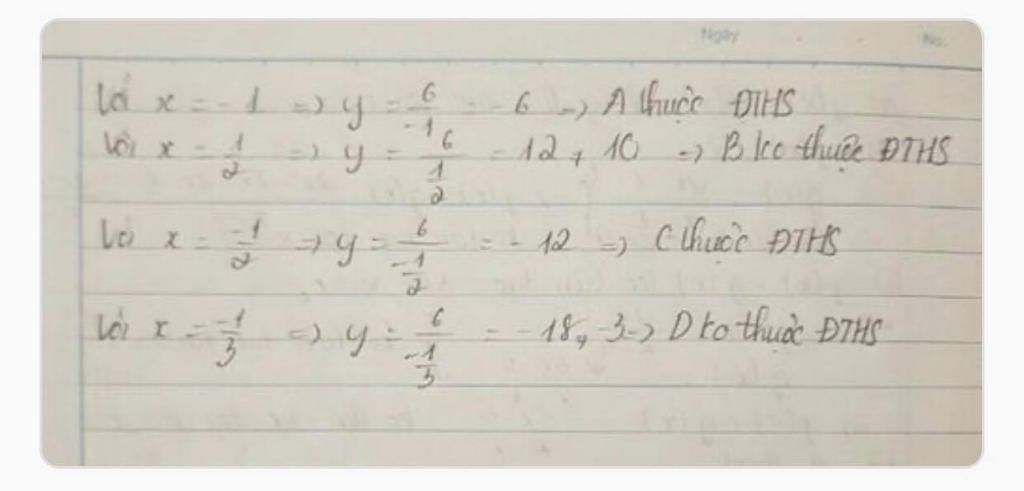 Ngày No.
Với x = -1 => y = 6/-1 = -6 => A thuộc ĐTHS
Với x = 1/2 => y = 6/(1/2) = 12 ≠ 10 => B ko thuộc ĐTHS
Với x = -1/2 => y = 6/(-1/2) = -12 => C thuộc ĐTHS
Với x = -1/3 => y = 6/(-1/3) = -18 ≠ -3 => D ko thuộc ĐTHS